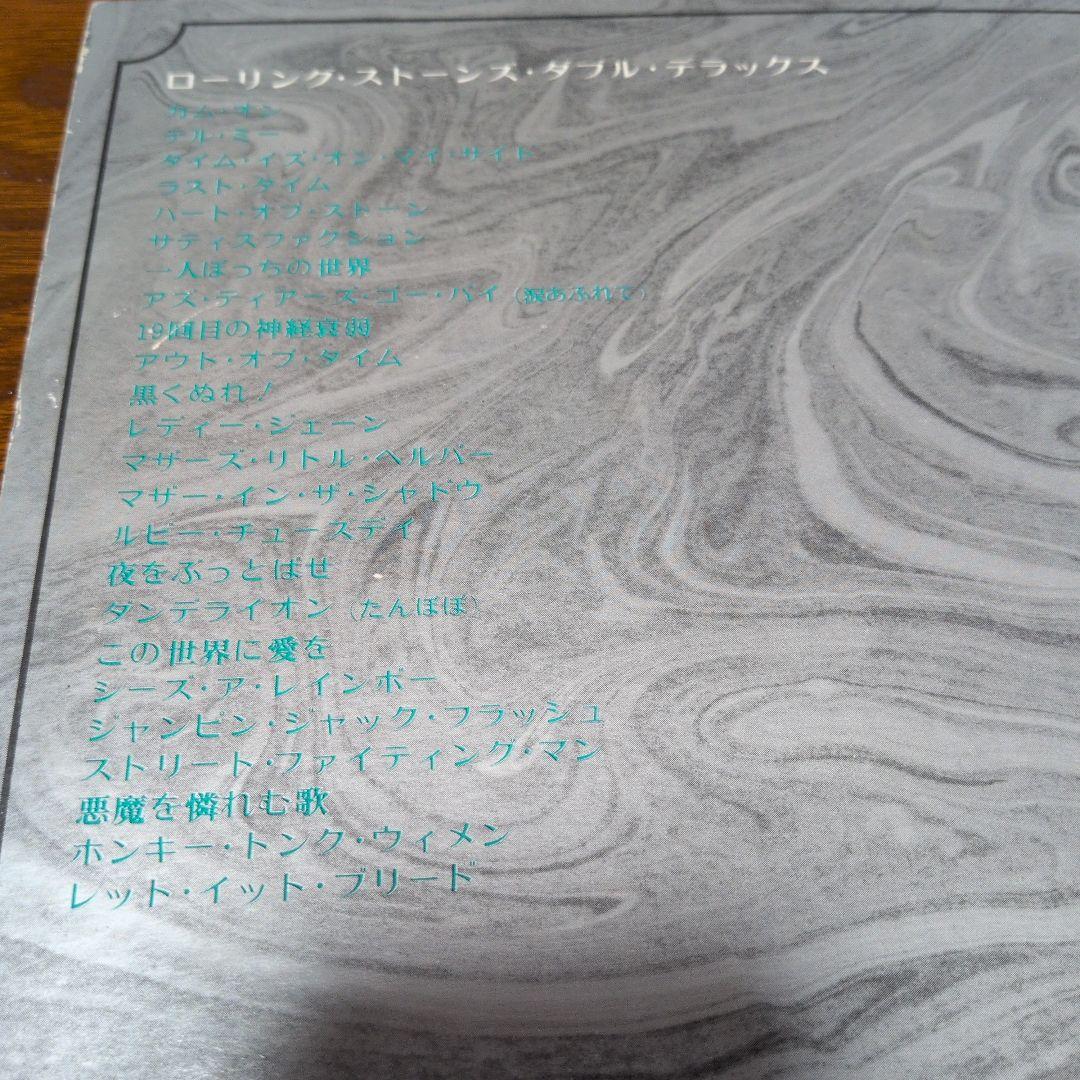 ローリング・ストーンズ・ダブル・デラックス
カム・オン
テル・ミー
タイム・イズ・オン・マイ・サイド
ラスト・タイム
ハート・オブ・ストーン
サティスファクション
一人ぼっちの世界
アズ・ティアーズ・ゴー・バイ（涙あふれて）
19回目の神経衰弱
アウト・オブ・タイム
黒くぬれ！
レディー・ジェーン
マザーズ・リトル・ヘルパー
マザー・イン・ザ・シャドウ
ルビー・チューズデイ
夜をぶっとばせ
ダンデライオン（たんぽぽ）
この世界に愛を
シーズ・ア・レインボー
ジャンピン・ジャック・フラッシュ
ストリート・ファイティング・マン
悪魔を憐れむ歌
ホンキー・トンク・ウィメン
レット・イット・ブリード